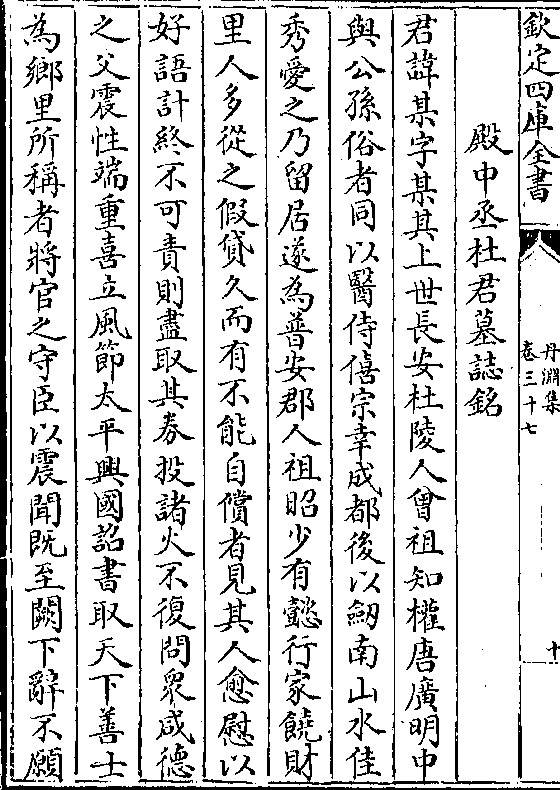 欽定四庫全書
丹淵集
卷三十七
十
殿中丞杜君墓誌銘
君諱某字某其上世長安杜陵人曾祖知權唐廣明中
與公孫俗者同以醫侍僖宗幸成都後以劒南山水佳
秀愛之乃留居遂為普安郡人祖昭少有懿行家饒財
里人多從之假貸久而有不能自償者見其人愈慰以
好語計終不可責則盡取其券投諸火不復問衆咸德
之父震性端重喜立風節太平興國詔書取天下善士
為鄉里所稱者將官之守臣以震聞既至闕下辭不願